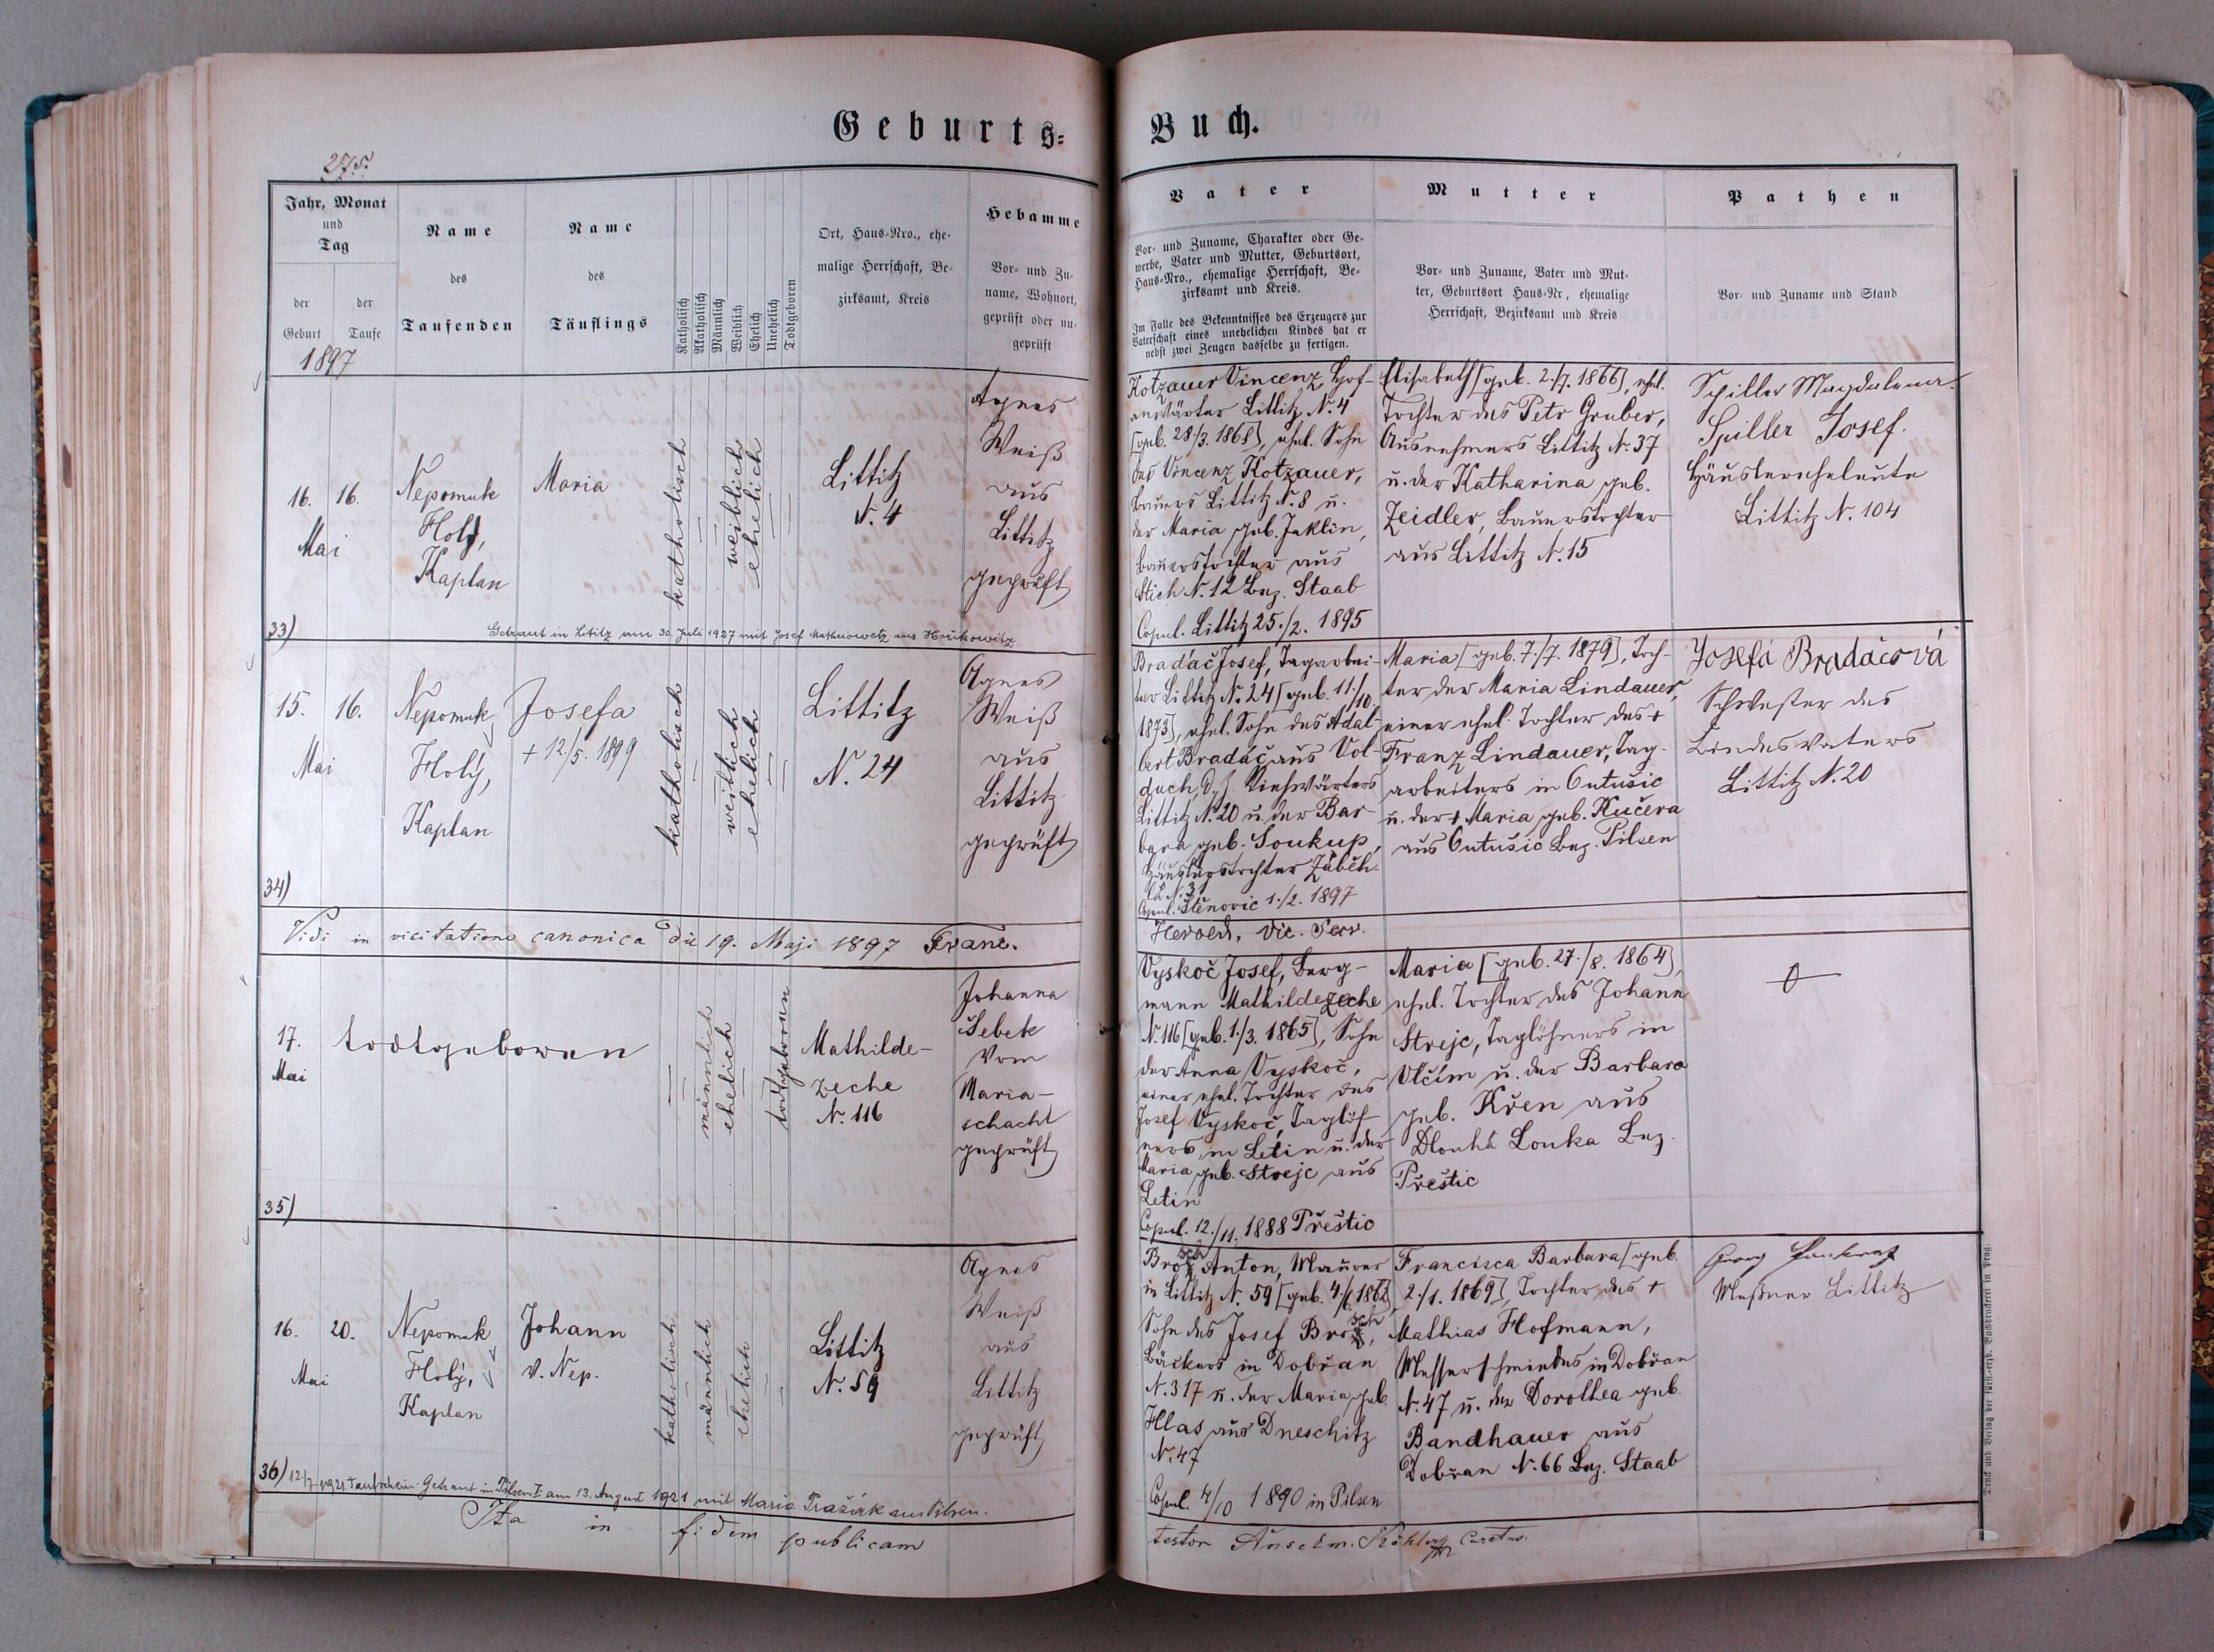 Geburts=
Buch.
275.
Jahr, Monat
und
Tag
der
Geburt
der
Taufe
1897
Name
des
Taufenden
Name
des
Täuflings
Katholisch
Akatholisch
Männlich
Weiblich
Ehelich
Unehelich
Todtgeboren
Ort, Haus-Nro., ehe-
malige Herrschaft, Be-
zirksamt, Kreis
Hebamme
Vor- und Zu-
name, Wohnort,
geprüft oder un-
geprüft
Vater
Vor- und Zuname, Charakter oder Ge-
werbe, Vater und Mutter, Geburtsort,
Haus-Nro., ehemalige Herrschaft, Be-
zirksamt und Kreis.
Im Falle des Bekenntnisses des Erzeugers zur
Vaterschaft eines unehelichen Kindes hat er
nebst zwei Zeugen dasselbe zu fertigen.
Mutter
Vor- und Zuname, Vater und Mut-
ter, Geburtsort Haus-Nr, ehemalige
Herrschaft, Bezirksamt und Kreis
Pathen
Vor- und Zuname und Stand
16. 16.
Mai
Nepomuk
Holý,
Kaplan
Maria
katholisch
weiblich
ehelich
Littitz
N. 4
Agnes
Weiß
aus
Littitz
geprüft
Kotzauer Vincenz, Hof-
anwärter Littitz N. 4
[geb. 28./3. 1868], ehel. Sohn
des Vincenz Kotzauer,
Bauers Littitz N. 8 u.
der Maria geb. Jaklin,
Bauerstochter aus
Stich N. 12 Bez. Staab
Copul. Littitz 25./2. 1895
Elisabeth [geb. 2./7. 1866], ehel.
Tochter des Petr Gruber,
Ausnehmers Littitz N. 37
u. der Katharina geb.
Zeidler, Bauerstochter
aus Littitz N. 15
Spiller Magdalena
Spiller Josef.
Häuslereheleute
Littitz N. 104
33)
Getraut in Lititz am 30. Juli 1927 mit Josef Mathiowetz aus Honkowitz
15. 16.
Mai
Nepomuk
Holý,
Kaplan
Josefa
+ 12./5. 1899
katholisch
weiblich
ehelich
Littitz
N. 24
Agnes
Weiß
aus
Littitz
geprüft
Bradáč Josef, Tagarbei-
ter Littitz N. 24 [geb. 11./10.
1873], ehel. Sohn des Adal-
bert Bradáč aus Vol-
duch, d. Z. Viehwärters
Littitz N. 20 u. der Bar-
bara geb. Soukup,
Häuslerstochter Záběh-
lá N. 31
Copul. Štěnovic 1./2. 1897
Maria [geb. 7./7. 1879], Toch-
ter der Maria Lindauer,
einer ehel. Tochter des +
Franz Lindauer, Tag-
arbeiters in Outušic
u. der + Maria geb. Kučera
aus Outušic Bez. Pilsen
Josefa Bradáčová
Schwester des
Kindesvaters
Littitz N. 20
34)
Vidi in visitatione canonica die 19. Maji 1897 Franc.
Herold, vic. Secr.
17.
Mai
todtgeboren
männlich
ehelich
todtgeboren
Mathilde-
zeche
N. 116
Johanna
Šebek
vom
Maria-
schacht
geprüft
Vyskoč Josef, Berg-
mann Mathildezeche
N. 116 [geb. 1./3. 1865], Sohn
der Anna Vyskoč,
einer ehel. Tochter des
Josef Vyskoč, Taglöh-
ners in Letin u. der
Maria geb. Strejc aus
Letin
Copul. 12./11. 1888 Přeštic
Maria [geb. 27./8. 1864],
ehel. Tochter des Johann
Strejc, Taglöhners in
Vlčím u. der Barbara
geb. Křen aus
Dlouhá Louka Bez.
Přeštic
35)
16. 20.
Mai
Nepomuk
Holý,
Kaplan
Johann
v. Nep.
katholisch
männlich
ehelich
Littitz
N. 59
Agnes
Weiß
aus
Littitz
geprüft
Brosch Anton, Maurer
in Littitz N. 59 [geb. 4./6. 1862],
Sohn des Josef Brosch,
Bäckers in Dobřan
N. 317 u. der Maria geb.
Hlas aus Dneschitz
N. 47
Copul. 4/10 1890 in Pilsen
Francisca Barbara [geb.
2./1. 1869], Tochter des +
Mathias Hofmann,
Messerschmiedes in Dobřan
N. 47 u. der Dorothea geb.
Bandhauer aus
Dobřan N. 66 Bez. Staab
Georg Pankraz
Meßner Littitz
36) 12./7. 1921 Taufschein. Getraut in Pilsen I am 13. August 1921 mit Maria aus Pilsen.
Ita in fidem publicam
testor Anselm. Köhler Curatus.
Druck und Verlag der fürst.-erzb. Buchdruckerei in Prag.